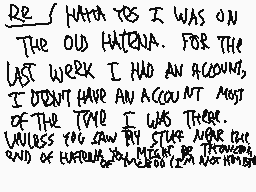 Re/ HAHA YOS I WAS ON
THE OLD HATENA. FOR THE
LAST WEEK I HAD AN ACCOUNT,
I DIDNT HAVE AN ACCOUNT MOST
OF THE TIME I WAS THERE.
UNLESS YOU SAW MY STUFF NEAR THE
END OF HATENA, YOU MIGHT BE THINKING
OF (I'M NOT HIM